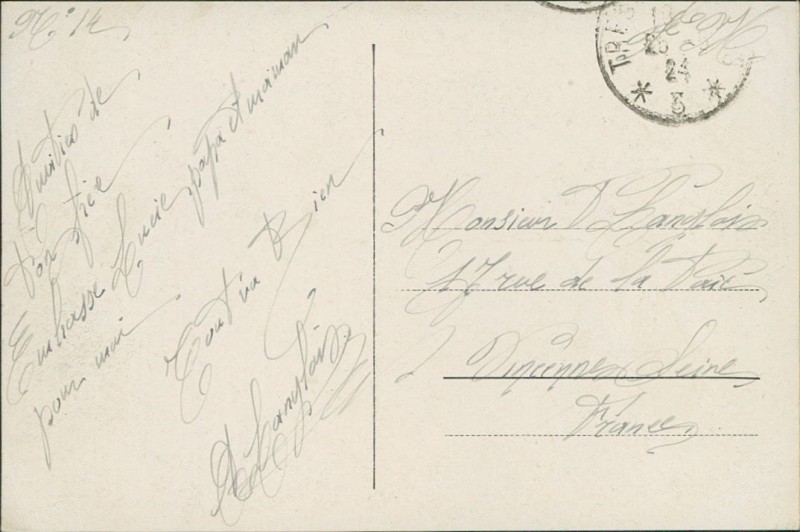 N° 14
Amitiés de
ton frère
Embrasse Lucie, papa et maman
pour moi
Tout va Bien
Langlois
24
* 3 *
Monsieur Langlois
17 rue de la Paix
Vincennes Seine
France